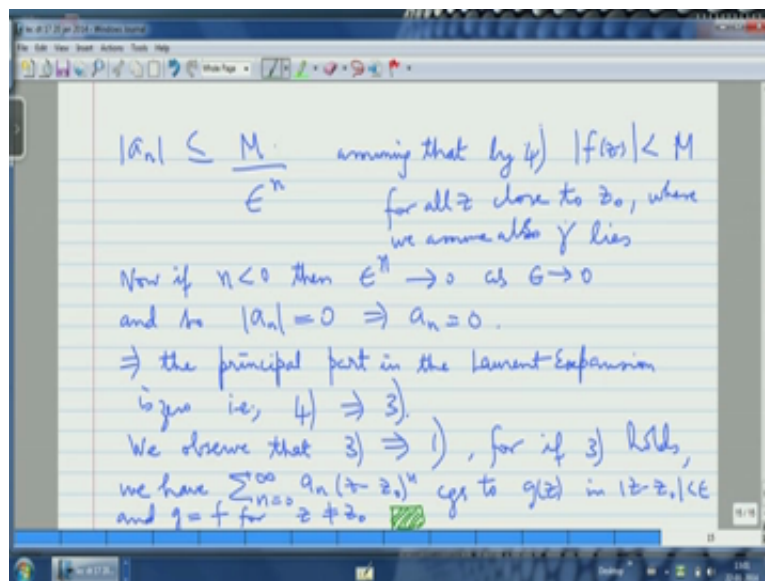 lec dt 17 20 jan 2014 - Windows Journal
File Edit View Insert Actions Tools Help
Whole Page
|aₙ| ≤ M / ϵⁿ assuming that by 4) |f(z)| < M
for all z close to z₀, where
we assume also γ lies
Now if n < 0 then ϵⁿ → 0 as ϵ → 0
and so |aₙ| = 0 ⇒ aₙ = 0.
⇒ the principal part in the Laurent Expansion
is zero i.e., 4) ⇒ 3).
We observe that 3) ⇒ 1), for if 3) holds,
we have ∑_{n=0}^{∞} aₙ (z - z₀)ⁿ cgs to g(z) in |z - z₀| < ϵ
and g = f for z ≠ z₀
15
Desktop